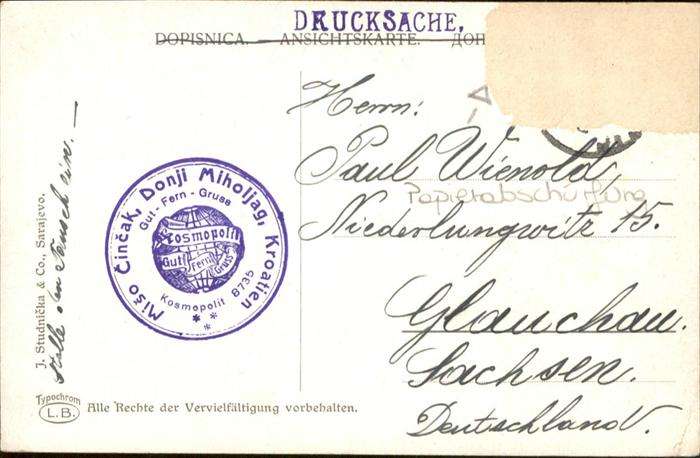 DRUCKSACHE,
DOPISNICA. — ANSICHTSKARTE. ДОП
Herrn:
Paul Wienold
Papierabschürfung
Niederlungwitz 15.
Glauchau.
Sachsen.
Deutschland.
Mišo Činčak, Donji Miholjag, Kroatien
Gut - Fern - Gruss
Kosmopolit
Gut Fern Gruss
Kosmopolit 8735
* * *
J. Studnička & Co., Sarajevo.
Stelle den Tausch ein. —
Typochrom
L.B.
Alle Rechte der Vervielfältigung vorbehalten.